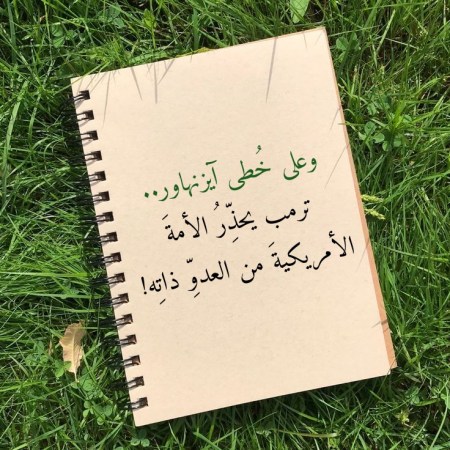 وعلى خُطى آيزنهاور..
ترمب يحذِّرُ الأمةَ
الأمريكيةَ من العدوِّ ذاتِه!